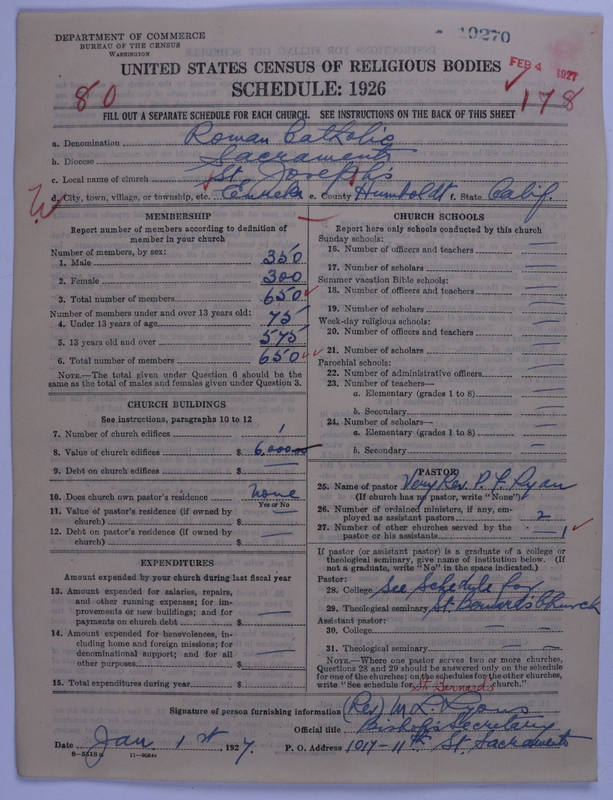 DEPARTMENT OF COMMERCE
BUREAU OF THE CENSUS
WASHINGTON
19270
FEB 4 1927
UNITED STATES CENSUS OF RELIGIOUS BODIES
SCHEDULE: 1926
80
178
FILL OUT A SEPARATE SCHEDULE FOR EACH CHURCH. SEE INSTRUCTIONS ON THE BACK OF THIS SHEET
a. Denomination Roman Catholic
b. Diocese Sacramento
c. Local name of church St. Joseph's
d. City, town, village, or township, etc. Eureka e. County Humboldt f. State Calif.
MEMBERSHIP
Report number of members according to definition of
member in your church
Number of members, by sex:
1. Male 350
2. Female 300
3. Total number of members 650
Number of members under and over 13 years old:
4. Under 13 years of age 75
5. 13 years old and over 575
6. Total number of members 650
NOTE.—The total given under Question 6 should be
same as the total of males and females given under Question 3.
CHURCH BUILDINGS
See instructions, paragraphs 10 to 12
7. Number of church edifices 1
8. Value of church edifices $ 6,000.00
9. Debt on church edifices $ —
10. Does church own pastor's residence none
Yes or No
11. Value of pastor's residence (if owned by
church) $ —
12. Debt on pastor's residence (if owned by
church) $ —
EXPENDITURES
Amount expended by your church during last fiscal year
13. Amount expended for salaries, repairs,
and other running expenses; for im-
provements or new buildings; and for
payments on church debt $ —
14. Amount expended for benevolences, in-
cluding home and foreign missions; for
denominational support; and for all
other purposes $ —
15. Total expenditures during year $
CHURCH SCHOOLS
Report here only schools conducted by this church
Sunday schools:
16. Number of officers and teachers —
17. Number of scholars —
Summer vacation Bible schools:
18. Number of officers and teachers —
19. Number of scholars —
Week-day religious schools:
20. Number of officers and teachers —
21. Number of scholars —
Parochial schools:
22. Number of administrative officers —
23. Number of teachers—
a. Elementary (grades 1 to 8) —
b. Secondary —
24. Number of scholars—
a. Elementary (grades 1 to 8) —
b. Secondary —
PASTOR
25. Name of pastor Very Rev. P. J. Ryan
(If church has no pastor, write "None")
26. Number of ordained ministers, if any, em-
ployed as assistant pastors 2
27. Number of other churches served by the
pastor or his assistants 1
If pastor (or assistant pastor) is a graduate of a college or
theological seminary, give name of institution below. (If
not a graduate, write "No" in the space indicated.)
Pastor:
28. College See Schedule for
29. Theological seminary St. Bernard's Church
Assistant pastor:
30. College — —
31. Theological seminary — —
NOTE.—Where one pastor serves two or more churches,
Questions 28 and 29 should be answered only on the schedule
for one of the churches; on the schedules for the other churches,
write "See schedule for St Bernard's church."
Signature of person furnishing information (Rev) M. L. Lyons
Official title Bishop's Secretary
Date Jan 1st, 1927. P. O. Address 1017-11th St. Sacramento